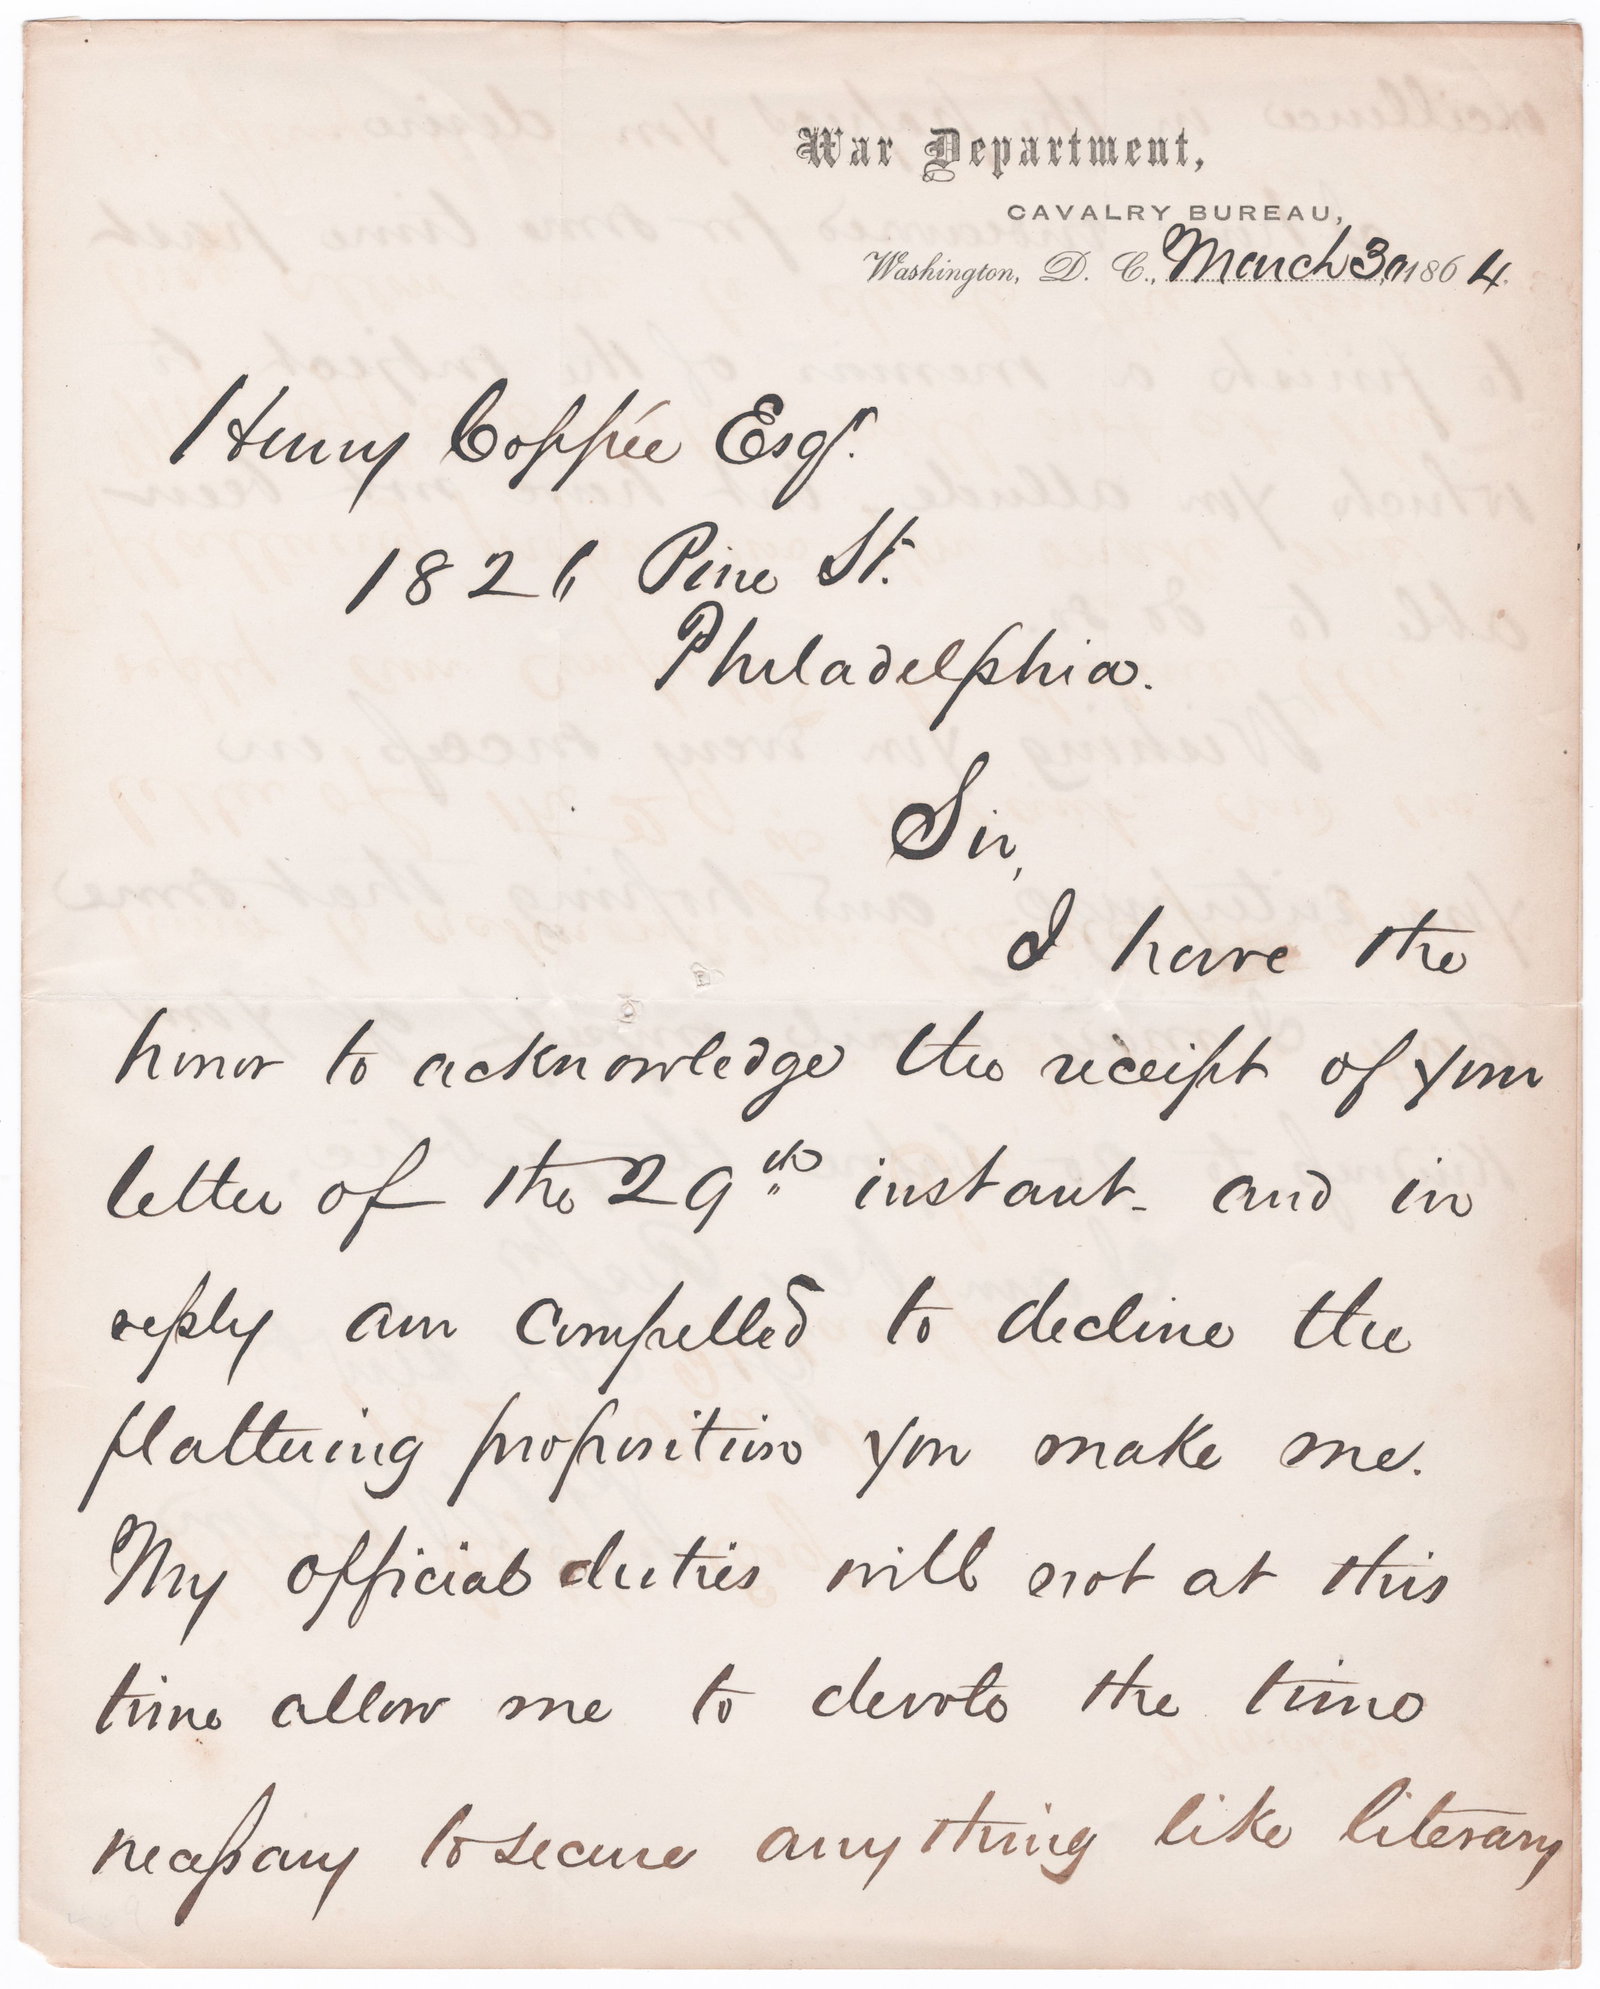 War Department,
CAVALRY BUREAU,
Washington, D. C., March 30, 1864.
Henry Coppée Esqr.
1826 Pine St.
Philadelphia.
Sir,
I have the
honor to acknowledge the receipt of your
letter of the 29th instant and in
reply am compelled to decline the
flattering proposition you make me.
My official duties will not at this
time allow me to devote the time
necessary to secure anything like literary